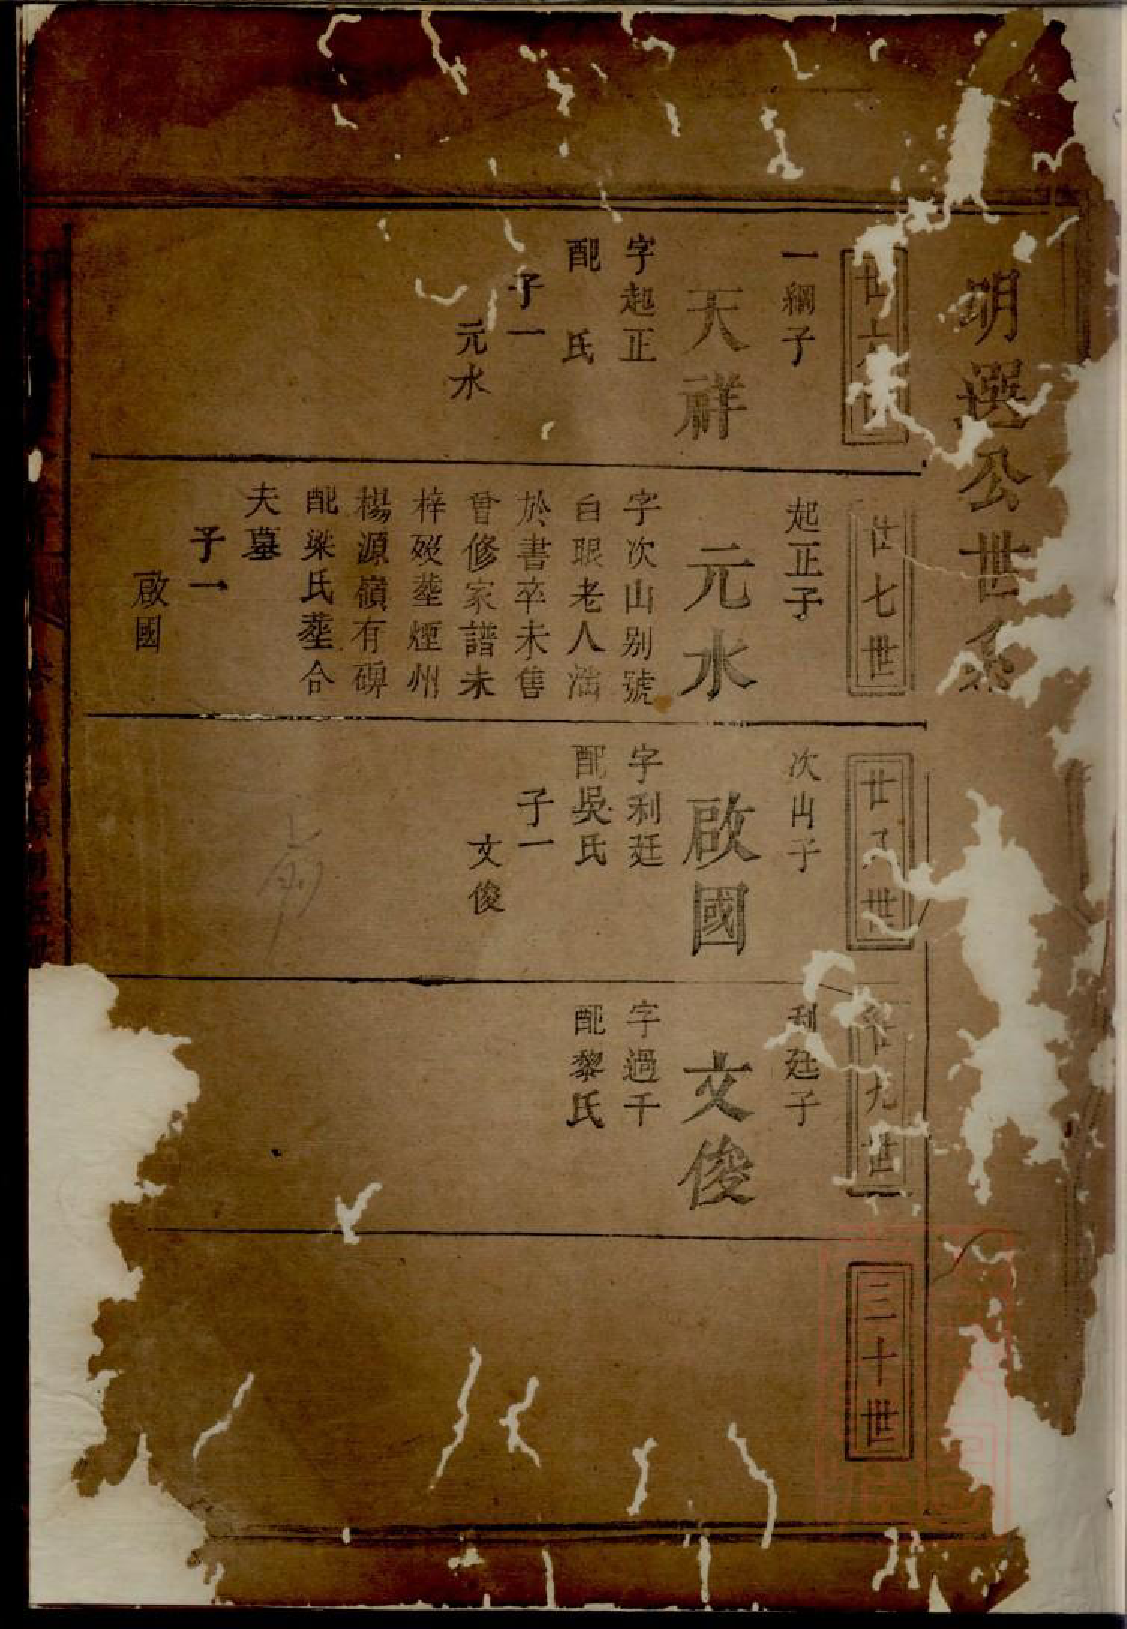 明選公世系
廿六世
一綱子
天祥
字起正
配　氏
子一
元水
廿七世
起正子
元水
字次山别號
白眼老人湍
於書卒未售
曾修家譜未
梓歿塟煙州
楊源嶺有碑
配梁氏塟合
夫墓
子一
啟國
廿八世
次山子
啟國
字利廷
配吳氏
子一
文俊
廿九世
利廷子
文俊
字過千
配黎氏
三十世